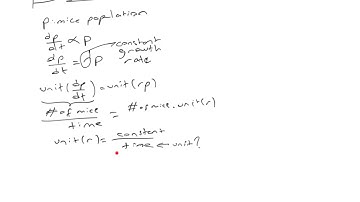 p: mice population
dp/dt ∝ P
dp/dt = rP constant growth rate
unit(dp/dt) = unit(rp)
# of mice/time = # of mice · unit(r)
unit(r) = constant/time ← unit?